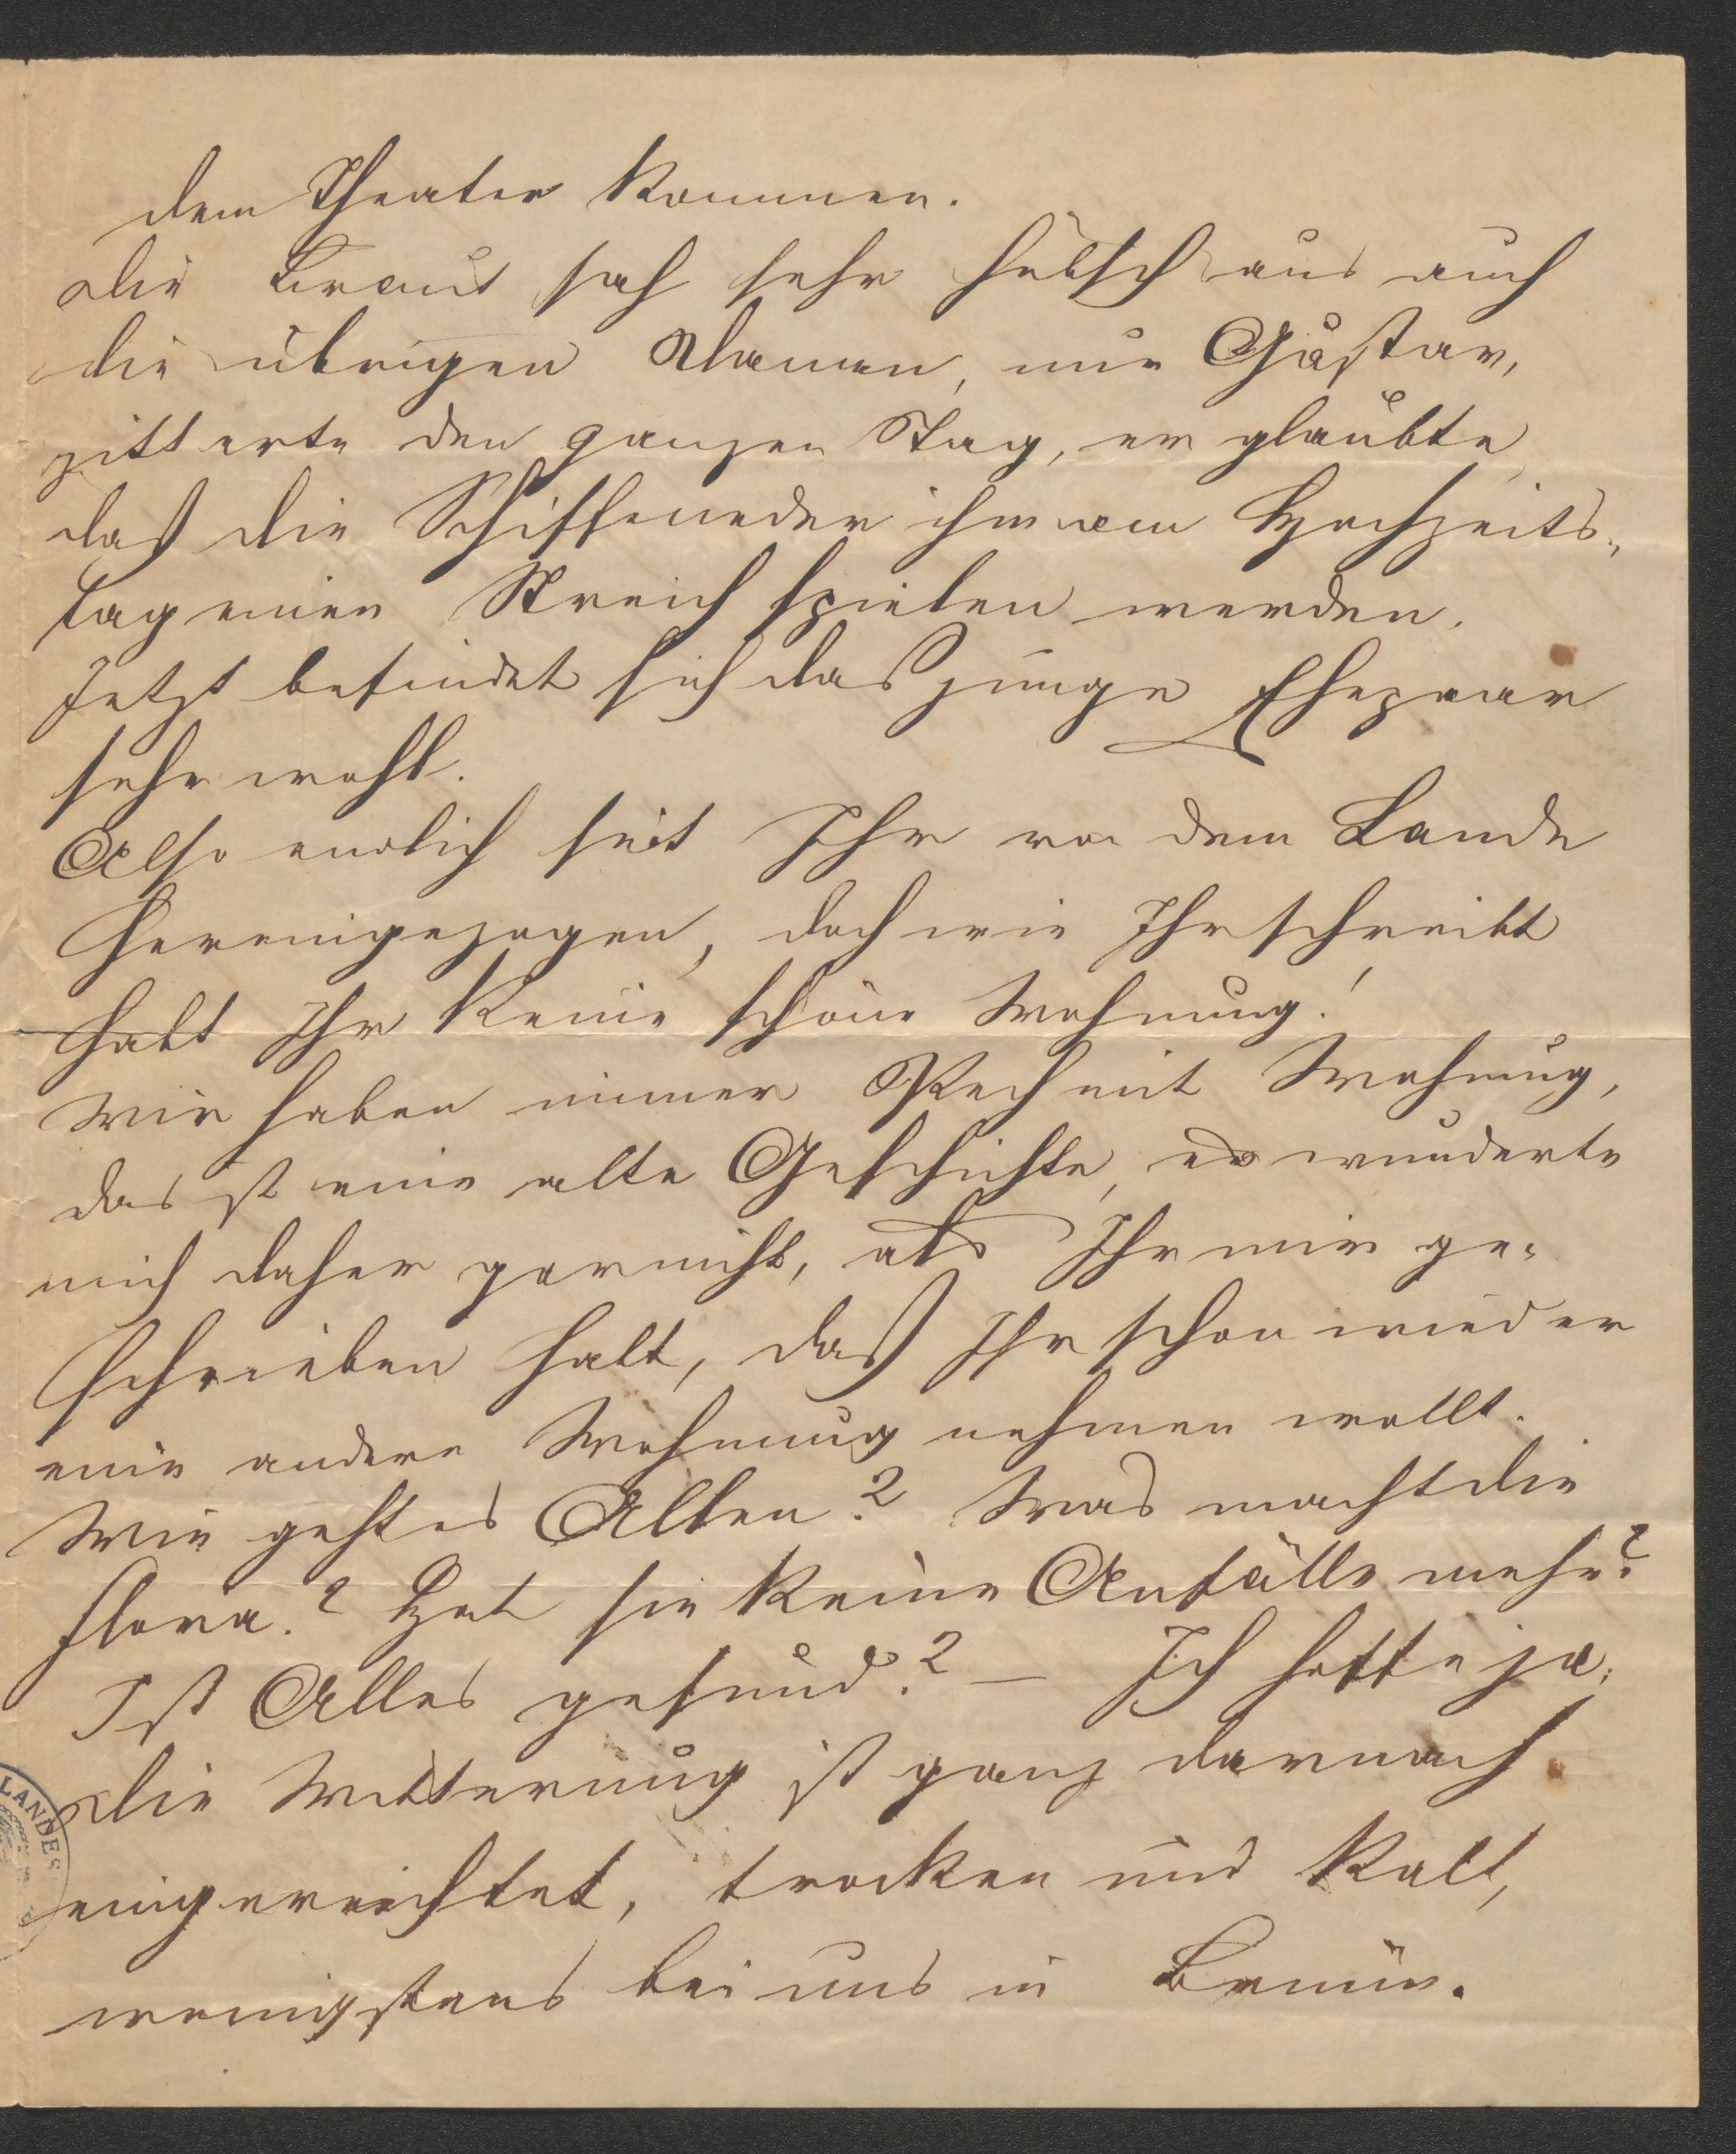 dem Theater kommen.
Die Braut sah sehr hübsch aus auch
die übrigen Damen, nur Gustav,
zitterte den ganzen Tag, er glaubte
daß die ihm am Hochzeits-
tag einen Streich spielen werden.
Jetzt befindet sich das junge Ehepaar
sehr wohl.
Also endlich seit Ihr von dem Lande
hereingezogen, doch wie Ihr schreibt
habt Ihr keine schöne Wohnung!
Wir haben immer Pech mit Wohnung,
das ist eine alte Geschichte, es wunderte
mich daher gar nicht, als Ihr mir ge-
schrieben habt, daß Ihr schon wieder
eine andere Wohnung nehmen wollt.
Wie geht es Allen? Was macht die
Flora? Hat sie keine Anfälle mehr?
Ist Alles gesund? — Ich hoffe ja,
die Witterung ist ganz darnach
eingerichtet, trocken und kalt,
wenigstens bei uns in Brünn.
LANDES